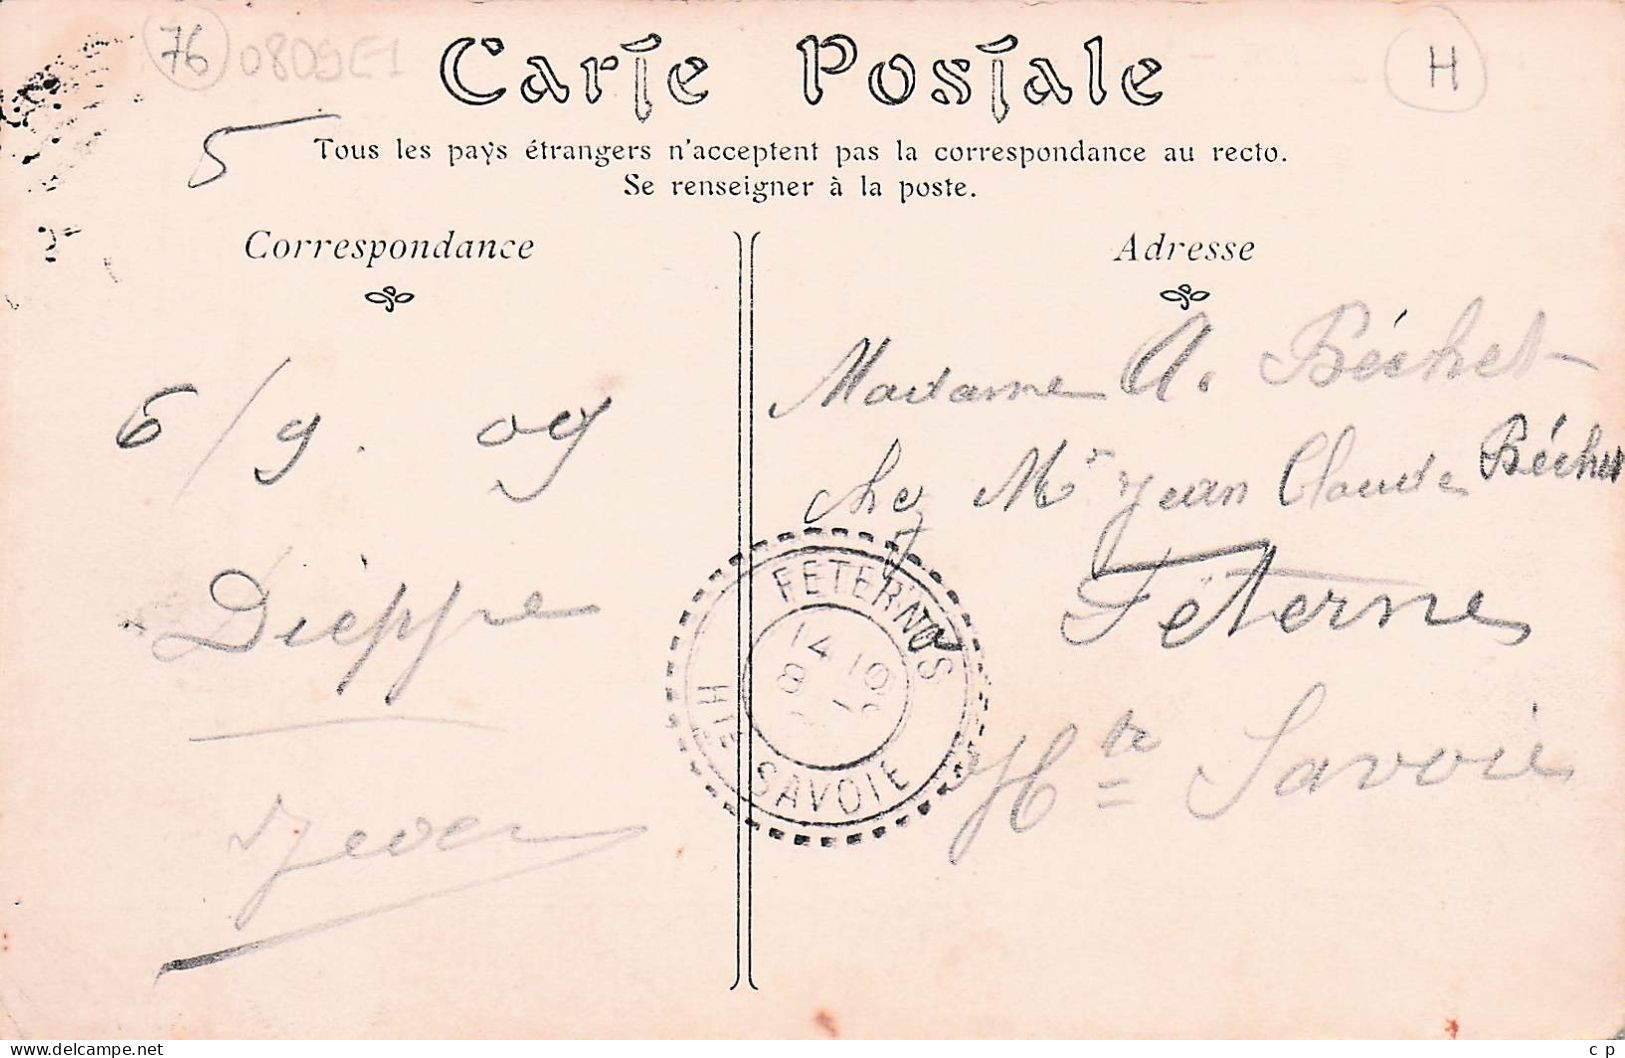 76
0809E1
H
Carte Postale
5
Tous les pays étrangers n'acceptent pas la correspondance au recto.
Se renseigner à la poste.
Correspondance
6/9. 09
Dieppe
Adresse
Madame A. Béchet
chez Mr Jean Claude Béchet
Féterne
Hte Savoie
FETERNES
14 10
8
HTE SAVOIE
c p